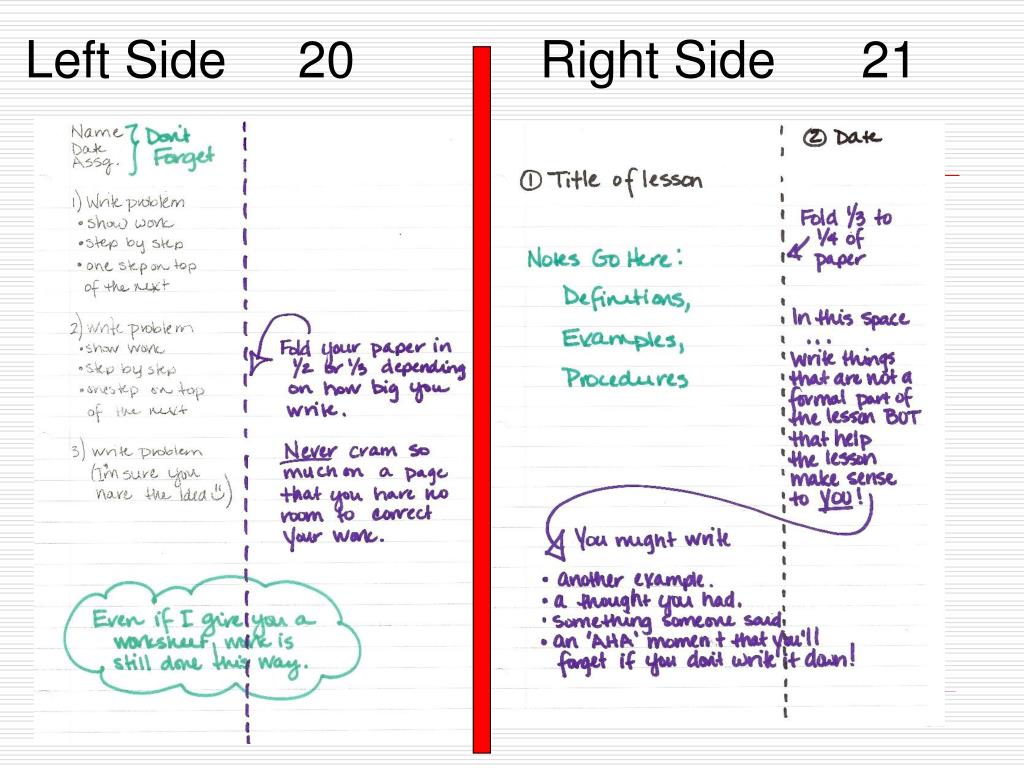 Left Side 20
Name
Date
Assg.
Don't
Forget
1) Write problem
• show work
• step by step
• one step on top
of the next
2) write problem
• show work
• step by step
• one step on top
of the next
3) write problem
(I'm sure you
have the idea☺)
Fold your paper in
1/2 or 1/3 depending
on how big you
write.
Never cram so
much on a page
that you have no
room to correct
your work.
Even if I give you a
worksheet, work is
still done this way.
Right Side 21
② Date
① Title of lesson
Notes Go Here:
Definitions,
Examples,
Procedures
Fold 1/3 to
1/4 of
paper
In this space
...
write things
that are not a
formal part of
the lesson BUT
that help
the lesson
make sense
to YOU!
You might write
• another example.
• a thought you had.
• something someone said.
• an 'AHA' moment that you'll
forget if you don't write it down!